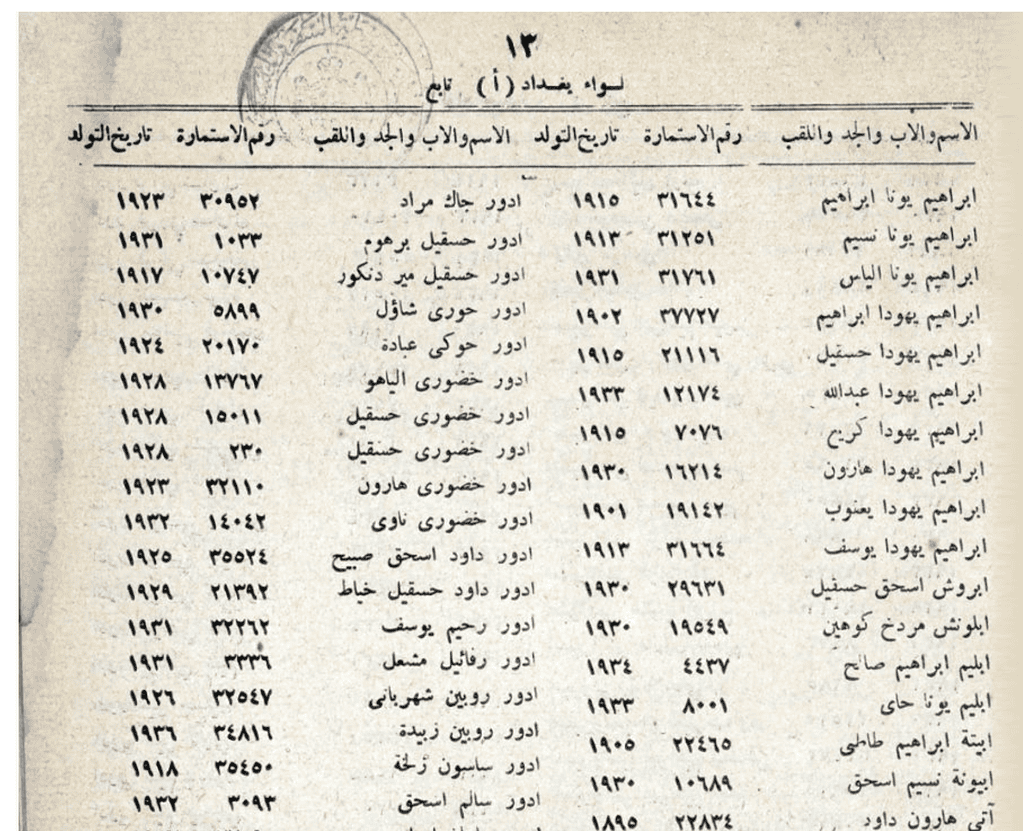 ١٣
لواء بغداد (أ) تابع
الاسم والاب والجد واللقب رقم الاستمارة تاريخ التولد الاسم والاب والجد واللقب رقم الاستمارة تاريخ التولد
ابراهيم يونا ابراهيم ٣١٦٤٤ ١٩١٥ ادور جاك مراد ٣٠٩٥٢ ١٩٢٣
ابراهيم يونا نسيم ٣١٢٥١ ١٩١٣ ادور حسقيل برهوم ١٠٣٣ ١٩٣١
ابراهيم يونا الياس ٣١٧٦١ ١٩٣١ ادور حسقيل مير دنكور ١٠٧٤٧ ١٩١٧
ابراهيم يهودا ابراهيم ٣٧٧٢٧ ١٩٠٢ ادور حورى شاؤل ٥٨٩٩ ١٩٣٠
ابراهيم يهودا حسقيل ٢١١١٦ ١٩١٥ ادور حوكى عبادة ٢٠١٧٠ ١٩٢٤
ابراهيم يهودا عبدالله ١٢١٧٤ ١٩٣٣ ادور خضورى الياهو ١٣٧٦٧ ١٩٢٨
ابراهيم يهودا كريم ٧٠٧٦ ١٩١٥ ادور خضورى حسقيل ١٥٠١١ ١٩٢٨
ابراهيم يهودا هارون ١٦٢١٤ ١٩٣٠ ادور خضورى حسقيل ٢٣٠ ١٩٢٨
ابراهيم يهودا يعقوب ١٩١٤٢ ١٩٠١ ادور خضورى هارون ٣٢١١٠ ١٩٢٣
ابراهيم يهودا يوسف ٣١٦٦٤ ١٩١٣ ادور خضورى ناوى ١٤٠٤٢ ١٩٣٢
ابروش اسحق حسقيل ٢٩٦٣١ ١٩٣٠ ادور داود اسحق صبيح ٣٥٥٢٤ ١٩٢٥
ابلونش مردخ كوهين ١٩٥٤٩ ١٩٣٠ ادور داود حسقيل خياط ٢١٣٩٢ ١٩٢٩
ابليم ابراهيم صالح ٤٤٣٧ ١٩٣٤ ادور رحيم يوسف ٣٢٢٦٢ ١٩٣١
ابليم يونا حاى ٨٠٠١ ١٩٣٣ ادور رفائيل مشعل ٣٣٣٦ ١٩٣١
ابيتة ابراهيم طاطى ٢٢٤٦٥ ١٩٠٥ ادور روبين شهربانى ٣٢٥٤٧ ١٩٢٦
ابيونة نسيم اسحق ١٠٦٨٩ ١٩٣٠ ادور روبين زبيدة ٣٤٨١٦ ١٩٣٦
آتى هارون داود ٢٢٨٣٤ ١٨٩٥ ادور ساسون زلخة ٣٥٤٥٠ ١٩١٨
ادور سالم اسحق ٣٠٩٣ ١٩٣٢